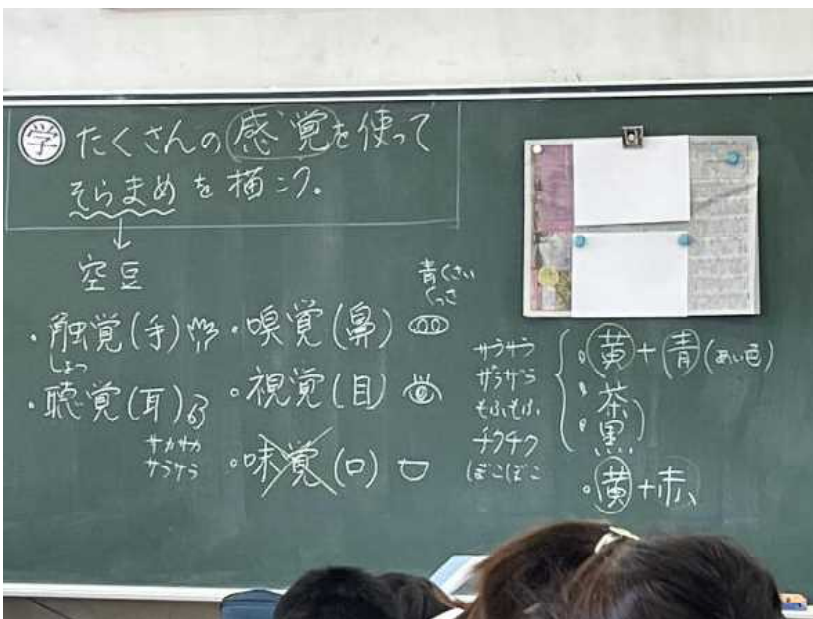 学 たくさんの感覚を使って
そらまめを描こう。
↓
空豆
・触覚(手)
しょっ
・聴覚(耳)
サカサカ
サラサラ
青くさい
くっさ
・嗅覚(鼻)
・視覚(目)
・味覚(口)
サラサラ
ザラザラ
もふもふ
チクチク
ぼこぼこ
黄+青(あい色)
茶
黒
黄+赤